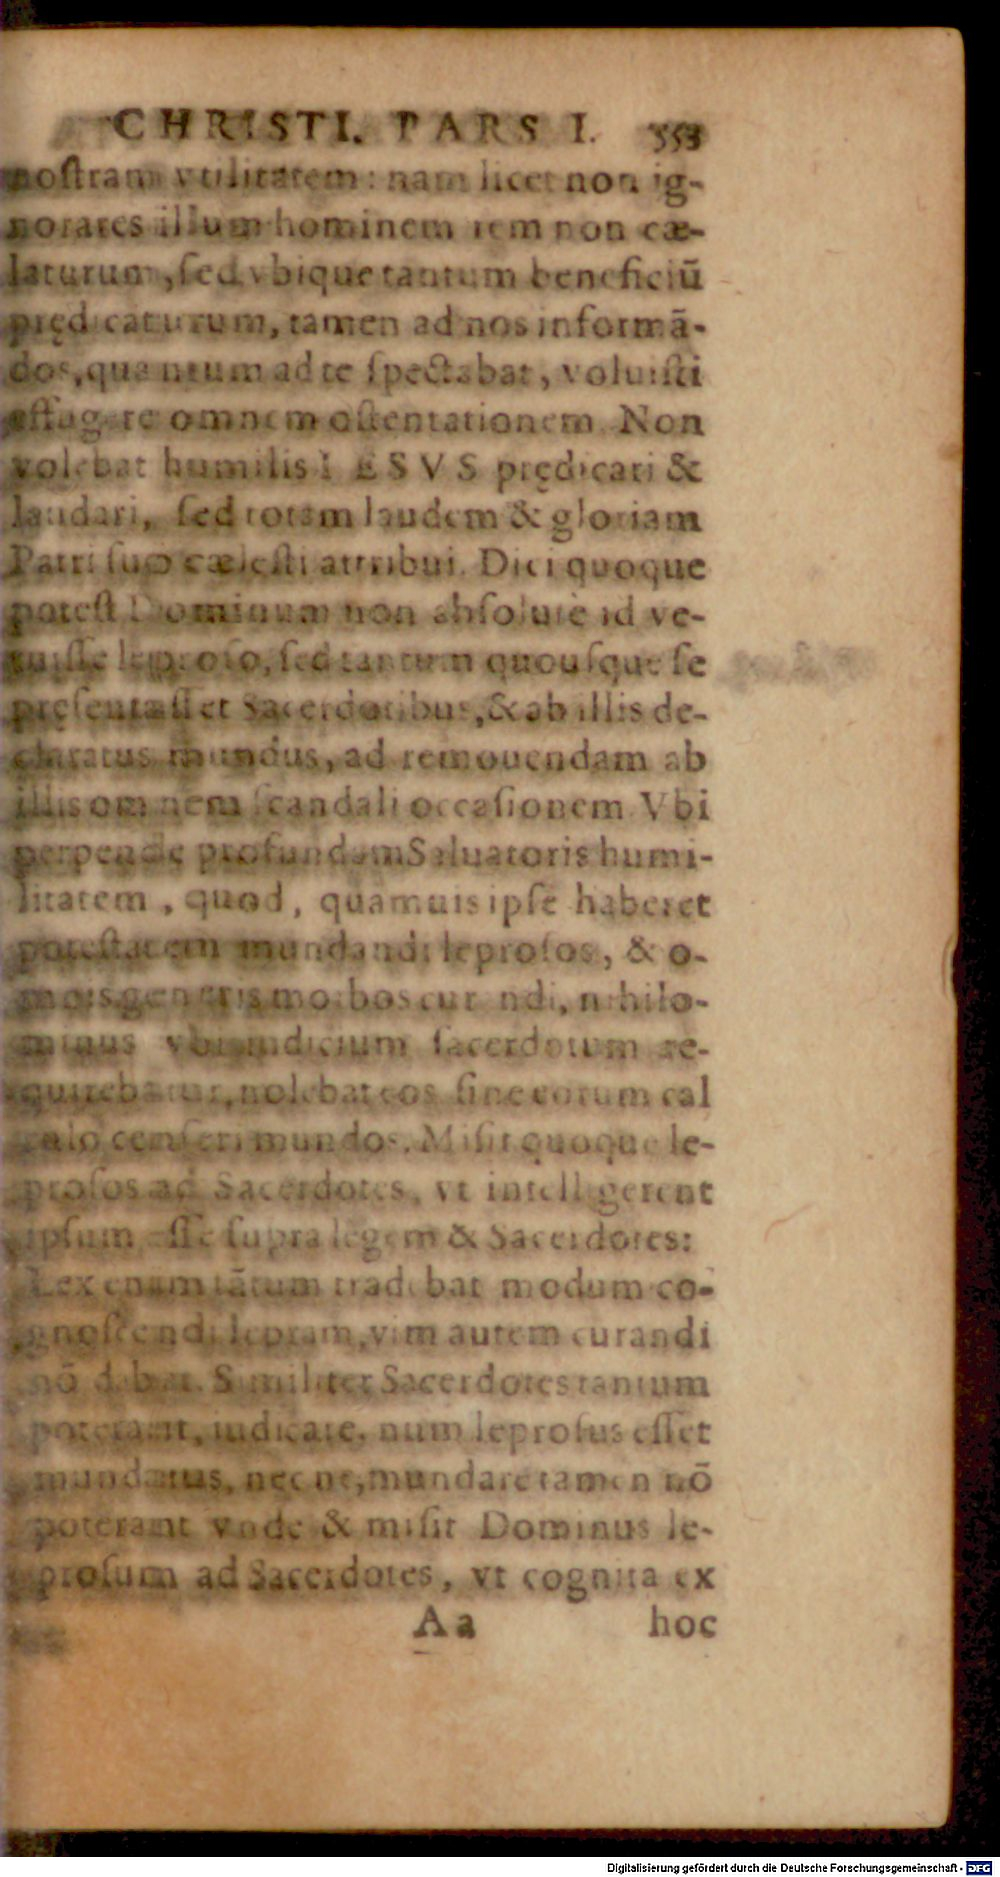 CHRISTI. PARS I. 553
nostram vtilitatem: nam licet non ig-
norares illum hominem rem non cæ-
laturum, sed vbique tantum beneficiū
prędicaturum, tamen ad nos informā-
dos, quantum ad te spectabat, voluisti
effugere omnem ostentationem. Non
volebat humilis IESVS prędicari &
laudari, sed totam laudem & gloriam
Patri suo cælesti attribui. Dici quoque
potest Dominum non absolutè id ve-
tuisse leproso, sed tantum quousque se
pręsentasset Sacerdotibus, & ab illis de-
claratus mundus, ad remouendam ab
illis omnem scandali occasionem. Vbi
perpende profundam Saluatoris humi-
litatem, quod, quamuis ipse haberet
potestatem mundandi leprosos, & o-
mnis generis morbos curandi, nihilo-
minus vbi iudicium sacerdotum re-
quirebatur, nolebat eos sine eorum cal
culo censeri mundos. Misit quoque le-
prosos ad Sacerdotes, vt intelligerent
ipsum esse supra legem & Sacerdotes:
Lex enim tātum tradebat modum co-
gnoscendi lepram, vim autem curandi
nō dabat. Similiter Sacerdotes tantum
poterant, iudicare, num leprosus esset
mundatus, nec ne, mundare tamen nō
poterant vnde & misit Dominus le-
prosum ad Sacerdotes, vt cognita ex
Aa hoc
Digitalisierung gefördert durch die Deutsche Forschungsgemeinschaft - DFG